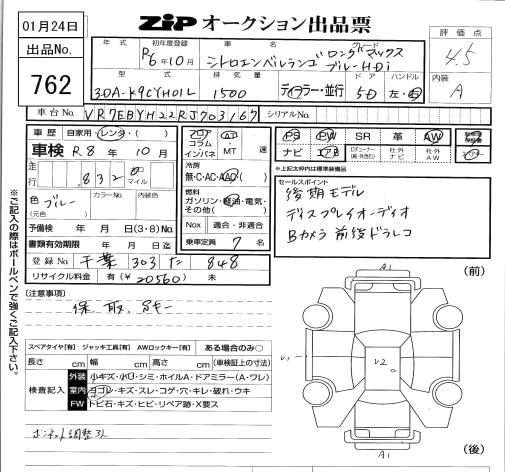 01月24日
ZIP オークション出品票
出品No.
762
年式 初年度登録 車名 グレード
R6年10月 シトロエンベルランゴ ロングマックス ブルーHDi
評価点
4.5
内装
A
型式 排気量 ドア ハンドル
3DA-K9CYH01L 1500 ディーラー・並行 5D 左・右
車台No. VR7EBYH22RJ703167 シリアルNo.
車歴 自家用・レンタ・( )
車検 R8年 10月
走行 .832 km マイル
色 ブルー (元色) カラーNo. 内装色
予備検 年 月 日(3・8)No.
書類有効期限 年 月 日迄
登録No 千葉 303 た 848
リサイクル料金 有(¥20560) 未
フロア コラム インパネ AT・MT 速
冷房
無・C・AC・AAC( )
燃料
ガソリン・軽油・電気・その他( )
Nox 適合・非適合
乗車定員 7 名
PS PW SR 革 AW
ナビ エアB Dチューナー(純・外含む) 社外ナビ 社外AW
*上記太枠内は標準装備品
セールスポイント
後期モデル
ディスプレイオーディオ
Bカメラ 前後ドラレコ
※ご記入の際はボールペンで強くご記入下さい。
[注意事項]
保 取
スペアタイヤ[有] ジャッキ工具[有] AWロックキー[有] ある場合のみ○
長さ cm 幅 cm 高さ cm (車検証上の寸法)
検査記入
外装 小キズ・小凹・シミ・ホイルA・ドアミラー(A・ワレ)
室内 ヨゴレ・キズ・スレ・コゲ・穴・キレ・破れ・ウキ
FW トビ石・キズ・ヒビ・リペア跡・X要ス
ボンネット調整ス
(前)
A1
V1
V2
A1
(後)